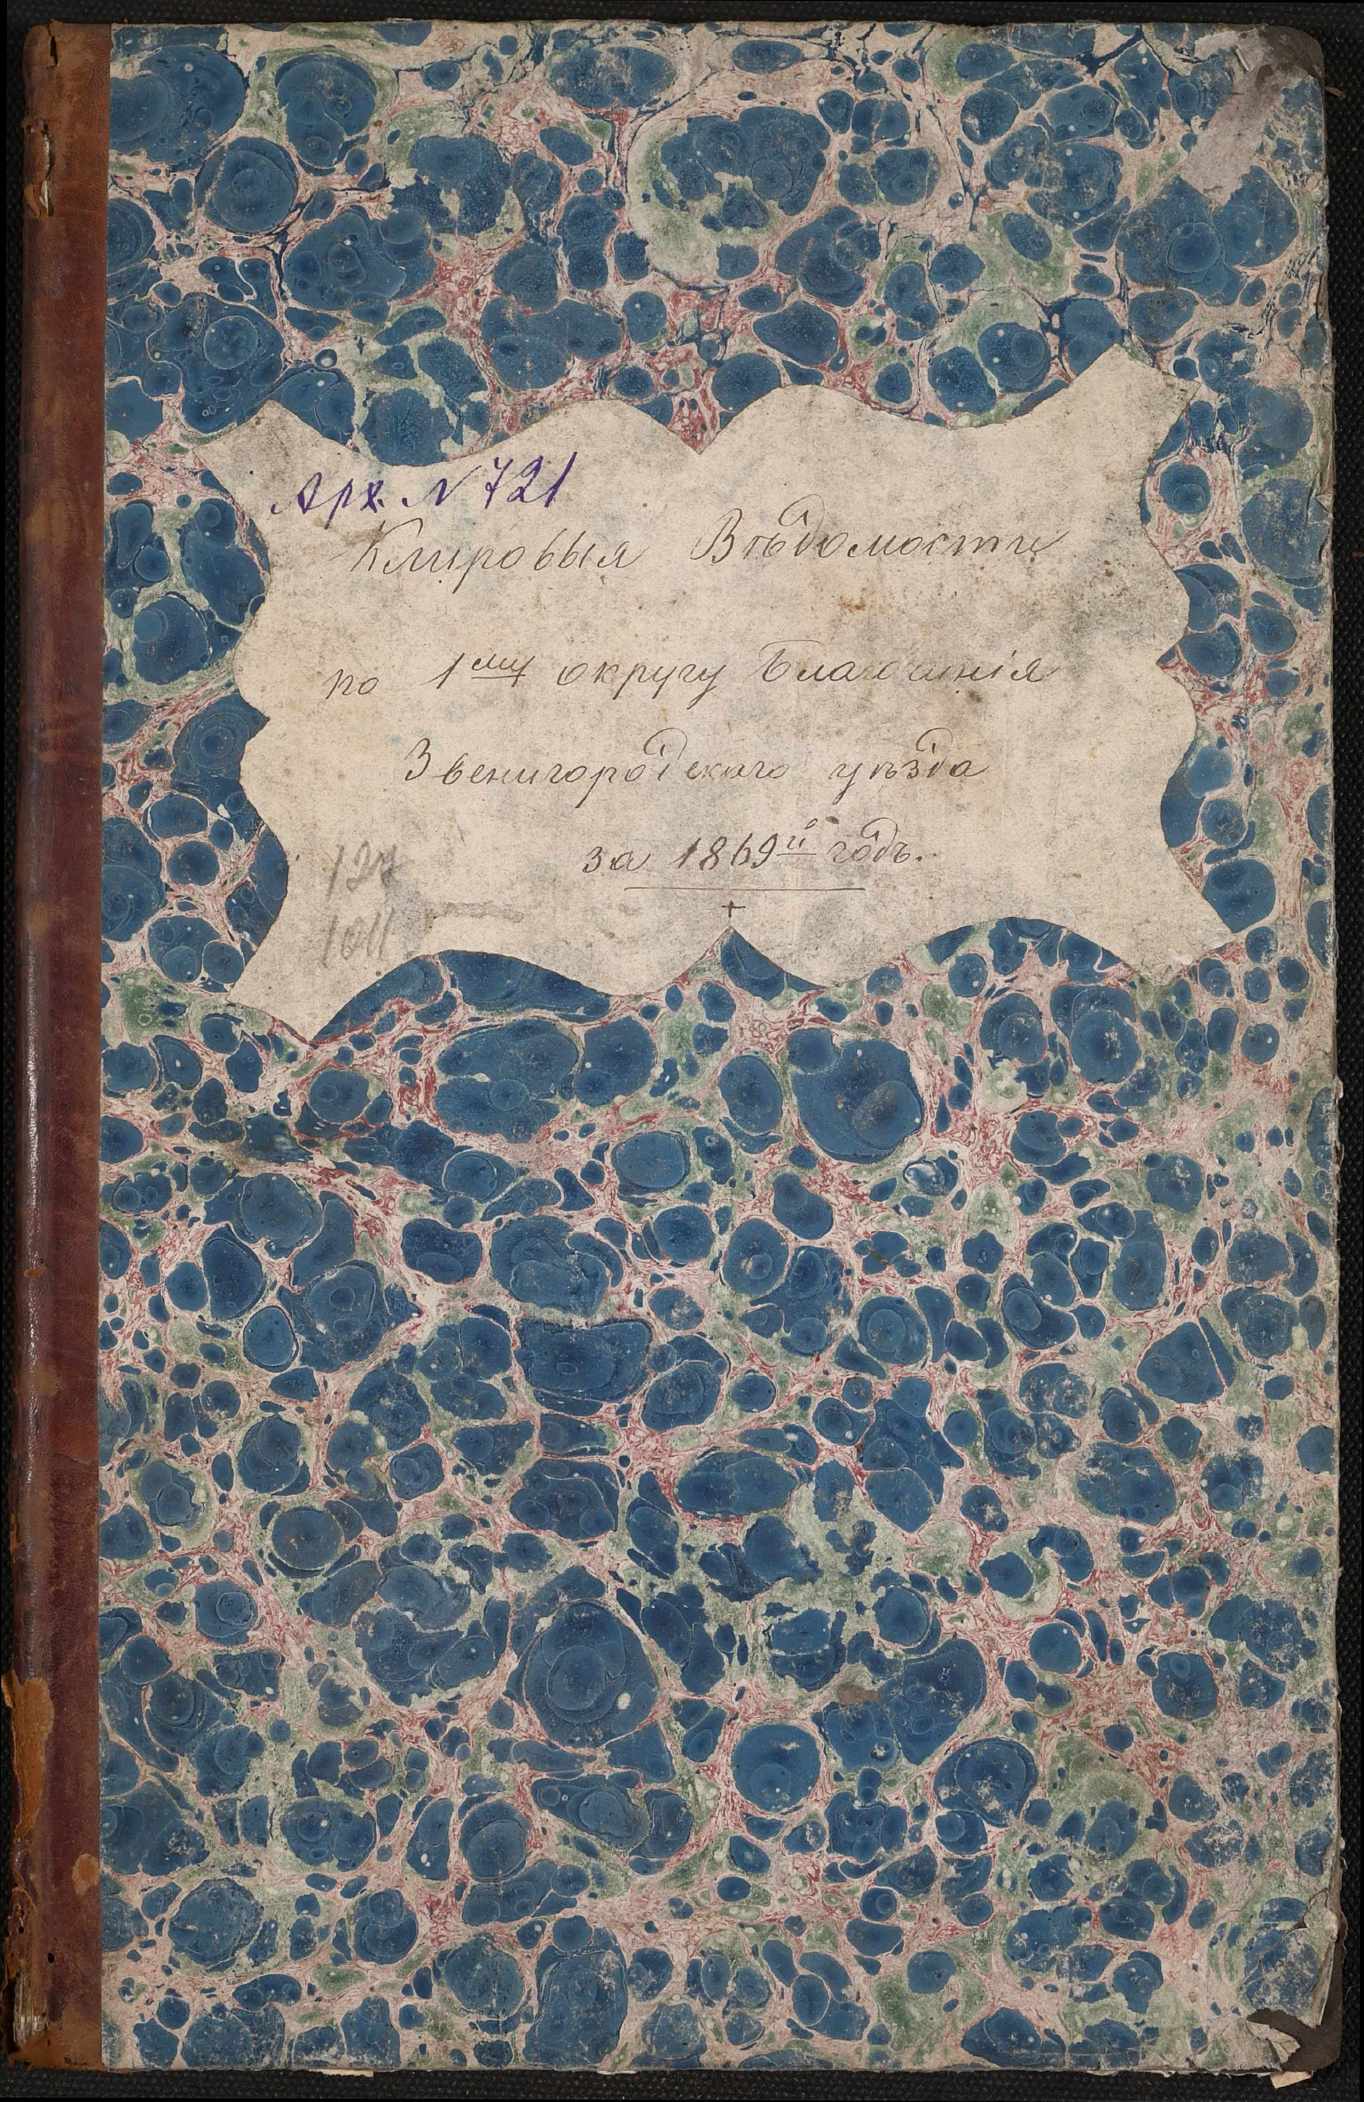 Арх. N 721
Клировыя Вѣдомости
по 1му округу Благочинія
Звенигородскаго уѣзда
за 1869й годъ.
1011